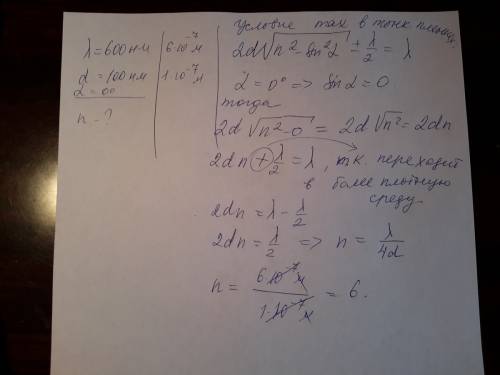 λ = 600 нм | 6·10⁻⁷ м
d = 100 нм | 1·10⁻⁷ м
α = 0°
n - ?
Условие max в тонк
2d√(n² - sin²α) ± λ/2 = λ
α = 0° => sin α = 0
тогда
2d√(n² - 0) = 2d√n² = 2dn
2dn + λ/2 = λ, т.к. переходит
в более плотную
среду
2dn = λ - λ/2
2dn = λ/2 => n = λ/4d
n = 6·10⁻⁷ м / 1·10⁻⁷ м = 6.